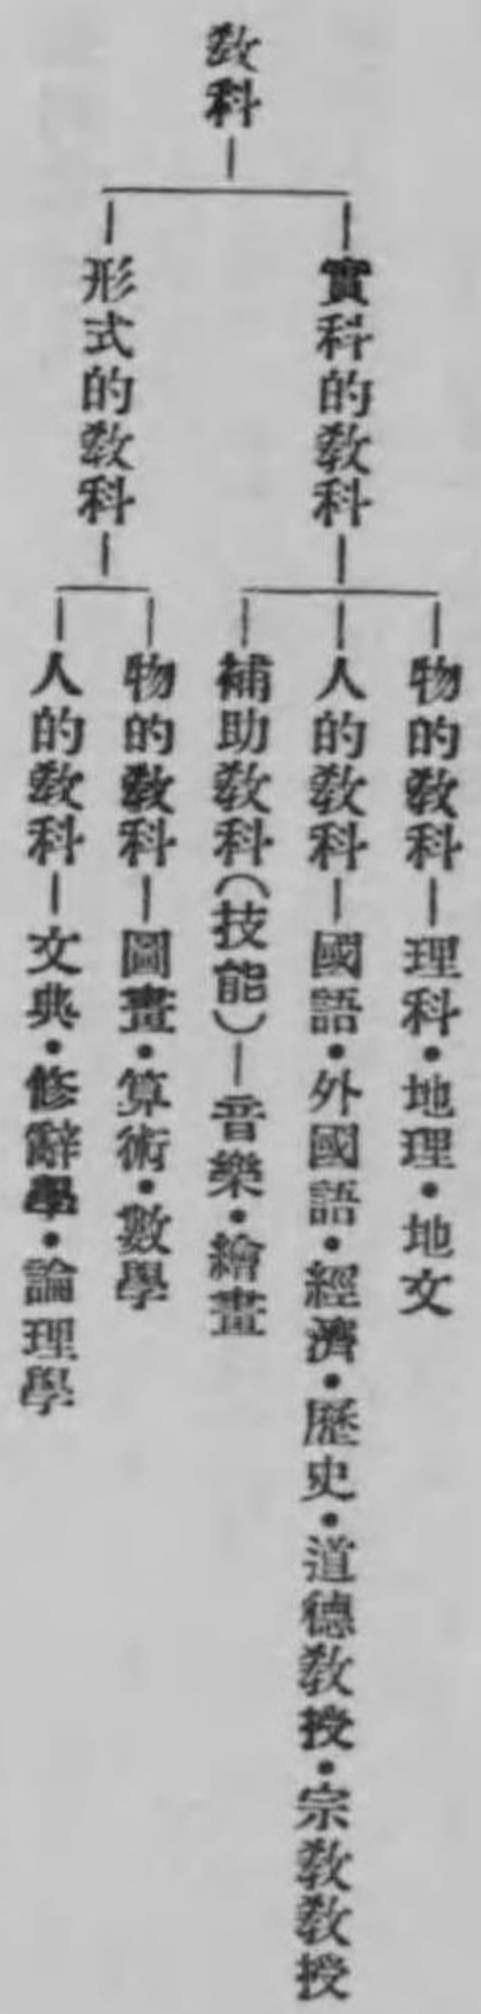 教科
實科的教科
物的教科─理科・地理・地文
人的教科─國語・外國語・經濟・歷史・道德教授・宗教教授
補助教科（技能）─音樂・繪畫
形式的教科
物的教科─圖畫・算術・數學
人的教科─文典・修辭學・論理學